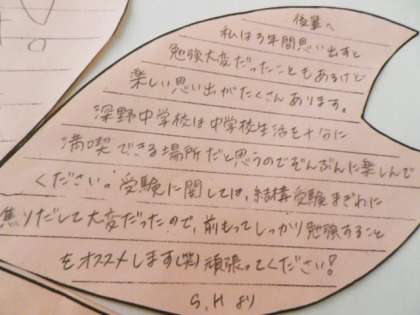 後輩へ
私は3年間思い出すと
勉強大変だったこともあるけど
楽しい思い出がたくさんあります。
深野中学校は中学校生活を十分に
満喫できる場所だと思うのでぞんぶんに楽しんで
ください。受験に関しては、結構受験まぎわに
焦りだして大変だったので、前もってしっかり勉強すること
をオススメします(笑)頑張ってください!
S,Hより